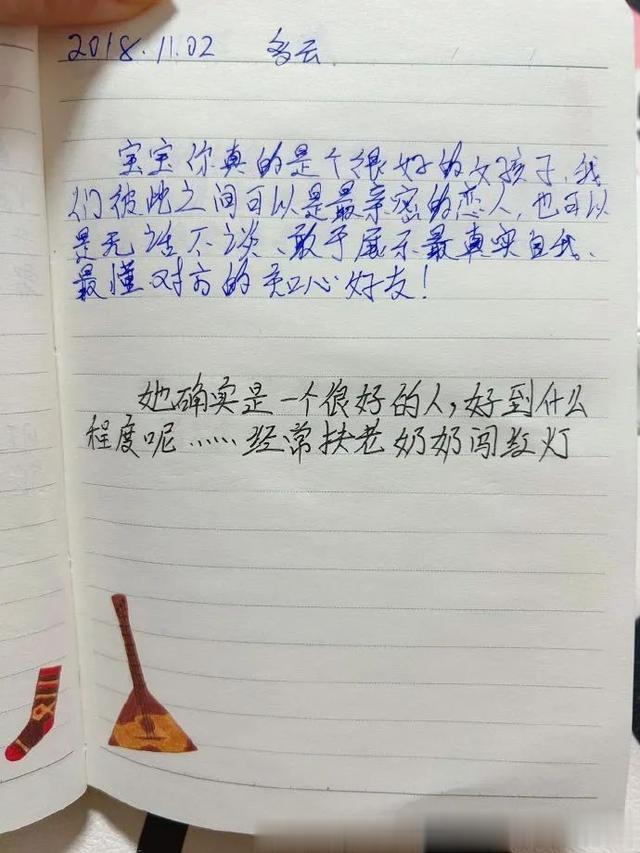 2018.11.02 多云
宝宝你真的是个很好的女孩子,我
们彼此之间可以是最亲密的恋人,也可以
是无话不谈、敢于展示最真实自我、
最懂对方的知心好友!
她确实是一个很好的人,好到什么
程度呢……经常扶老奶奶闯红灯